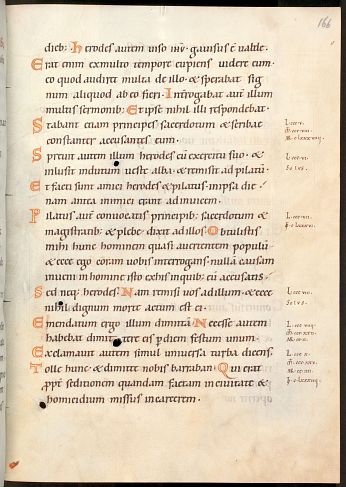 166
dieb: herodes autem viso iħu gauisus ē ualde.
Erat enim ex multo tempore cupiens uidere eum.
eo quod audiret multa de illo. & sperabat sig
num aliquod ab eo fieri. Interrogabat aut illum
multis sermonib; Et ipse nihil illi respondebat.
Stabant etiam principes sacerdotum & scribae
constanter accusantes eum.
Spreuit autem illum herodes cū exercitu suo. &
inlusit indutum ueste alba. & remisit ad pilatū.
Et facti sunt amici herodes & pilatus. in ipsa die.
nam antea inimici erant ad inuicem.
Pilatus aut conuocatis principib; sacerdotum &
magistratib; & plebe. dixit ad illos. Obtulistis
mihi hunc hominem quasi auertentem populū
& ecce ego coram uobis interrogans. nullā causam
inueni in homine isto ex his in quib; eū accusatis.
Sed neq; herodes. Nam remisi uos ad illum. & ecce
nihil dignum morte actum est ei.
Emendatum ergo illum dimittā. Necesse autem
habebat dimittere eis p diem festum unum.
Exclamauit autem simul uniuersa turba dicens.
Tolle hunc. & dimitte nobis barraban. Qui erat
ppt seditionem quandam factam in ciuitate &
homicidium missus in carcerem.